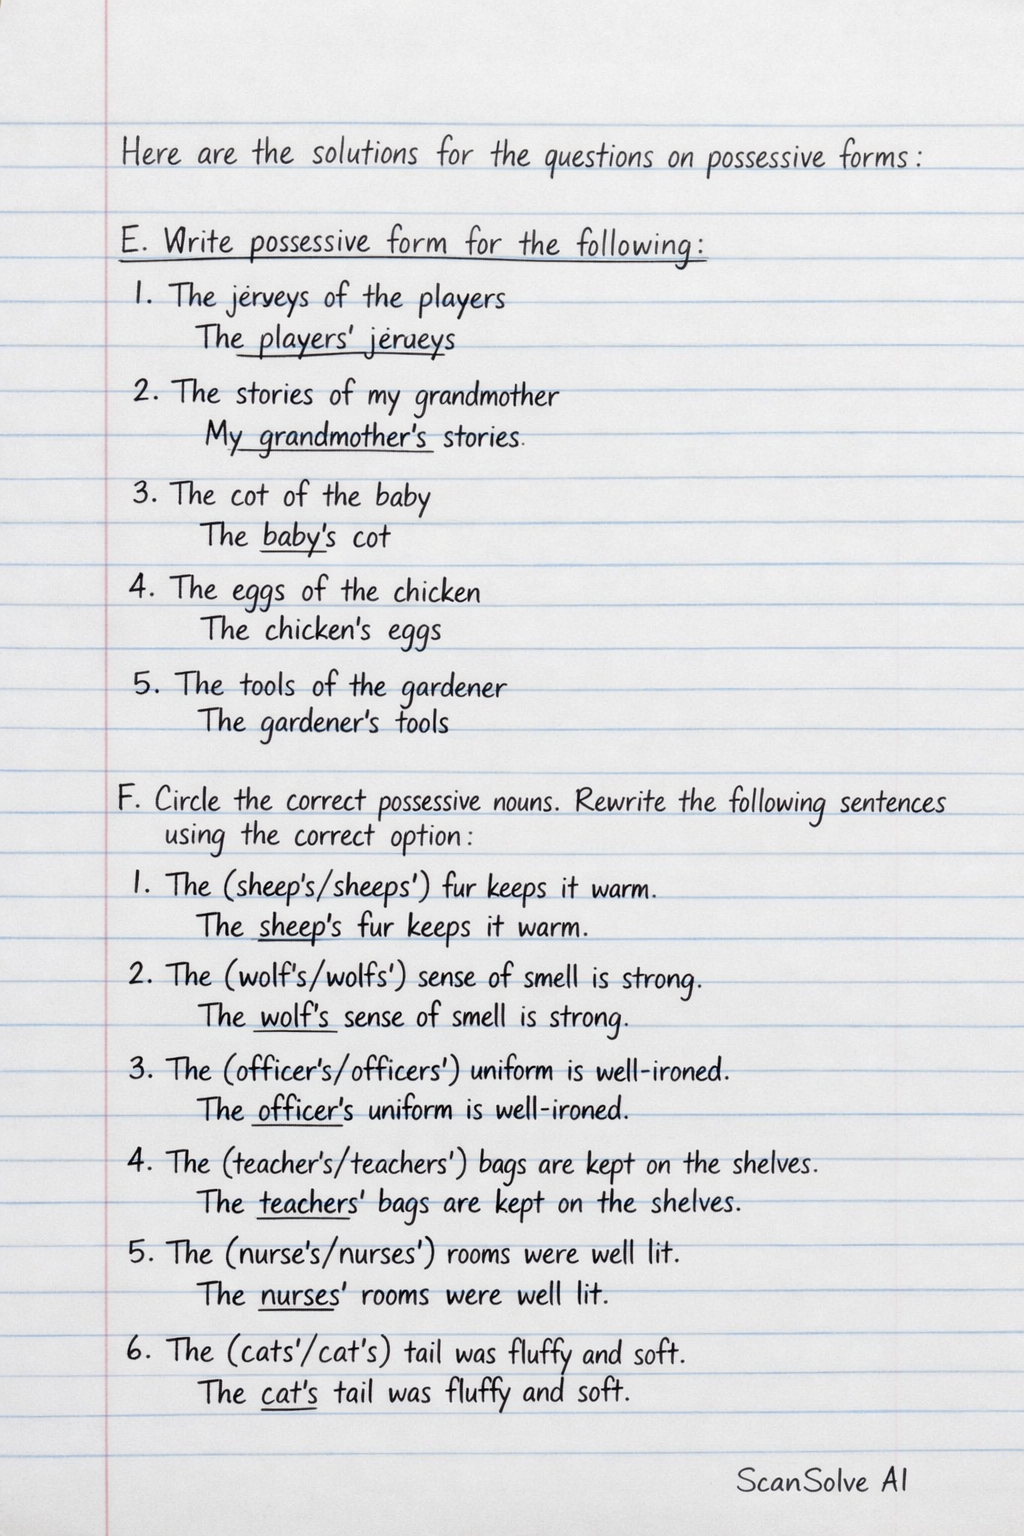 Here are the solutions for the questions on possessive forms:
E. Write possessive form for the following:
1. The jerveys of the players
The players' jeraeys
2. The stories of my grandmother
My grandmother's stories.
3. The cot of the baby
The baby's cot
4. The eggs of the chicken
The chicken's eggs
5. The tools of the gardener
The gardener's tools
F. Circle the correct possessive nouns. Rewrite the following sentences
using the correct option:
1. The (sheep's/sheeps') fur keeps it warm.
The sheep's fur keeps it warm.
2. The (wolf's/wolfs') sense of smell is strong.
The wolf's sense of smell is strong.
3. The (officer's/officers') uniform is well-ironed.
The officer's uniform is well-ironed.
4. The (teacher's/teachers') bags are kept on the shelves.
The teachers' bags are kept on the shelves.
5. The (nurse's/nurses') rooms were well lit.
The nurses' rooms were well lit.
6. The (cats'/cat's) tail was fluffy and soft.
The cat's tail was fluffy and soft.
ScanSolve AI